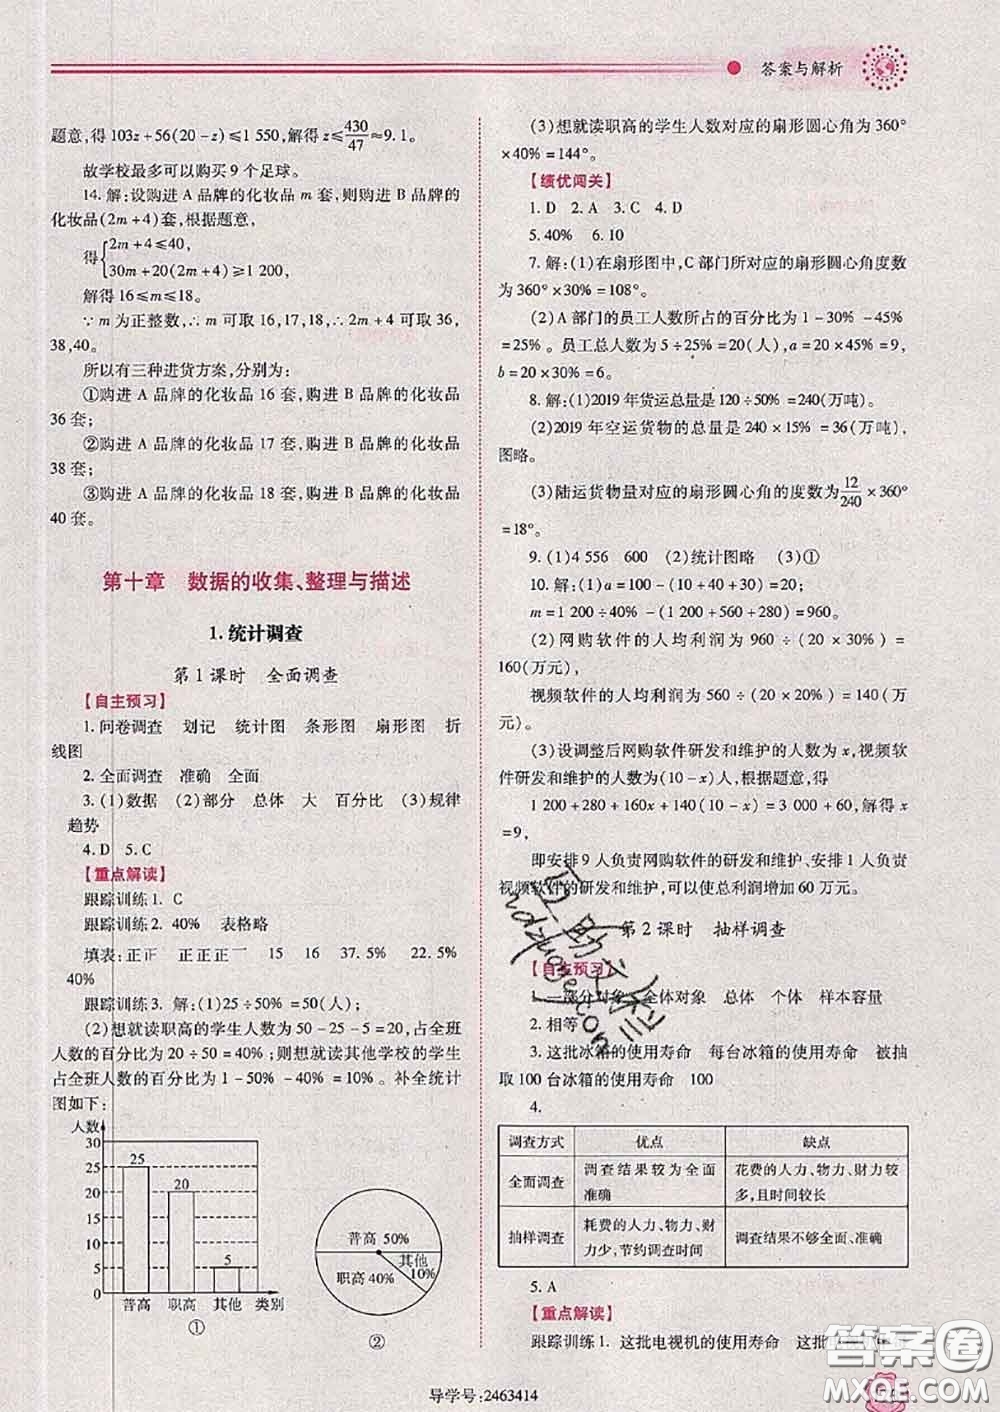 答案与解析
题意,得 103z+56(20-z)≤1 550,解得 z≤430/47≈9.1.
故学校最多可以购买 9 个足球.
14.解:设购进 A 品牌的化妆品 m 套,则购进 B 品牌的
化妆品(2m+4)套,根据题意,
得{2m+4≤40,
30m+20(2m+4)≥1 200,
解得 16≤m≤18.
∵ m 为正整数,∴ m 可取 16,17,18,∴ 2m+4 可取 36,
38,40.
所以有三种进货方案,分别为:
①购进 A 品牌的化妆品 16 套,购进 B 品牌的化妆品
36 套;
②购进 A 品牌的化妆品 17 套,购进 B 品牌的化妆品
38 套;
③购进 A 品牌的化妆品 18 套,购进 B 品牌的化妆品
40 套.
第十章 数据的收集、整理与描述
1.统计调查
第 1 课时 全面调查
【自主预习】
1.问卷调查 划记 统计图 条形图 扇形图 折
线图
2.全面调查 准确 全面
3.(1)数据 (2)部分 总体 大 百分比 (3)规律
趋势
4.D 5.C
【重点解读】
跟踪训练1. C
跟踪训练2. 40% 表格略
填表:正正 正正正 15 16 37.5% 22.5%
40%
跟踪训练3. 解:(1)25÷50%=50(人);
(2)想就读职高的学生人数为 50-25-5=20,占全班
人数的百分比为 20÷50=40%;则想就读其他学校的学生
占全班人数的百分比为 1-50%-40%=10%. 补全统计
图如下:
人数
30
25
20
15
10
5
0
25
20
5
普高 职高 其他 类别
①
普高 50%
职高 40%
其他
10%
②
(3)想就读职高的学生人数对应的扇形圆心角为 360°
×40%=144°.
【绩优闯关】
1.D 2.A 3.C 4.D
5.40% 6.10
7.解:(1)在扇形图中,C 部门所对应的扇形圆心角度数
为 360°×30%=108°.
(2)A 部门的员工人数所占的百分比为 1-30%-45%
=25%. 员工总人数为 5÷25%=20(人),a=20×45%=9,
b=20×30%=6.
8.解:(1)2019 年货运总量是 120÷50%=240(万吨).
(2)2019 年空运货物的总量是 240×15%=36(万吨),
图略.
(3)陆运货物量对应的扇形圆心角的度数为12/240×360°
=18°.
9.(1)4 556 600 (2)统计图略 (3)①
10.解:(1)a=100-(10+40+30)=20;
m=1 200÷40%-(1 200+560+280)=960.
(2)网购软件的人均利润为 960÷(20×30%)=
160(万元),
视频软件的人均利润为 560÷(20×20%)=140(万
元).
(3)设调整后网购软件研发和维护的人数为 x,视频软
件研发和维护的人数为(10-x)人,根据题意,得
1 200+280+160x+140(10-x)=3 000+60,解得 x
=9,
即安排 9 人负责网购软件的研发和维护、安排 1 人负责
视频软件的研发和维护,可以使总利润增加 60 万元.
第 2 课时 抽样调查
【自主预习】
1.一部分对象 全体对象 总体 个体 样本容量
2.相等
3.这批冰箱的使用寿命 每台冰箱的使用寿命 被抽
取 100 台冰箱的使用寿命 100
4.
调查方式 优点 缺点
全面调查 调查结果较为全面准确 花费的人力、物力、财力较多,且时间较长
抽样调查 耗费的人力、物力、财力少,节约调查时间 调查结果不够全面、准确
5.A
【重点解读】
跟踪训练1. 这批电视机的使用寿命 这批
导学号:2463414
答案圈
MXQE.COM